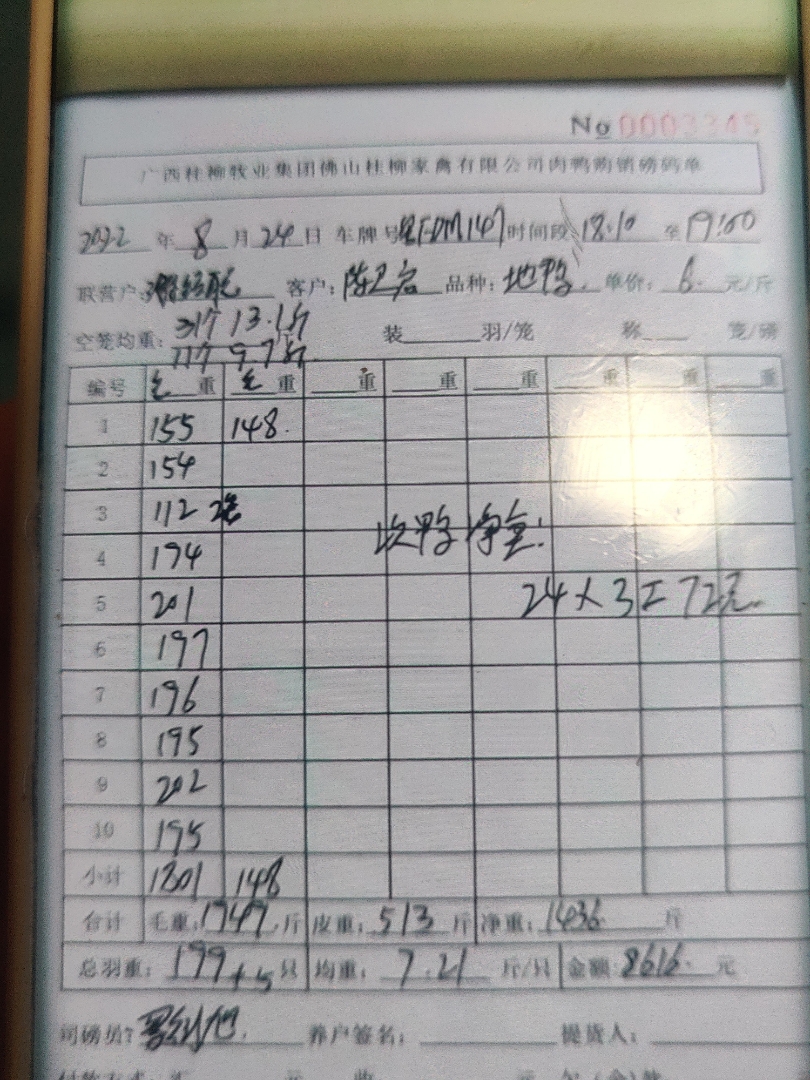 No 0003345
广西桂柳牧业集团佛山桂柳家禽有限公司肉鸭购销磅码单
2022 年 8 月 24 日 车牌号 FDM147 时间段 18:10 至 19:00
联营户: 客户: 陈卫宏 品种: 地鸭 单价: 6 元/斤
空笼均重: 317 13.1斤 装 羽/笼 称 笼/磅
117 9.7斤
编号 毛重 毛重 重 重 重 重 重 重
1 155 148
2 154
3 112 2笼
4 194
次鸭净重:
5 201 24×3=72元
6 197
7 196
8 195
9 202
10 195
小计 1801 148
合计 毛重: 1949 斤 皮重: 513 斤 净重: 1436 斤
总羽重: 199+5 只 均重: 7.21 斤/只 金额: 8616 元
司磅员: 养户签名: 提货人: